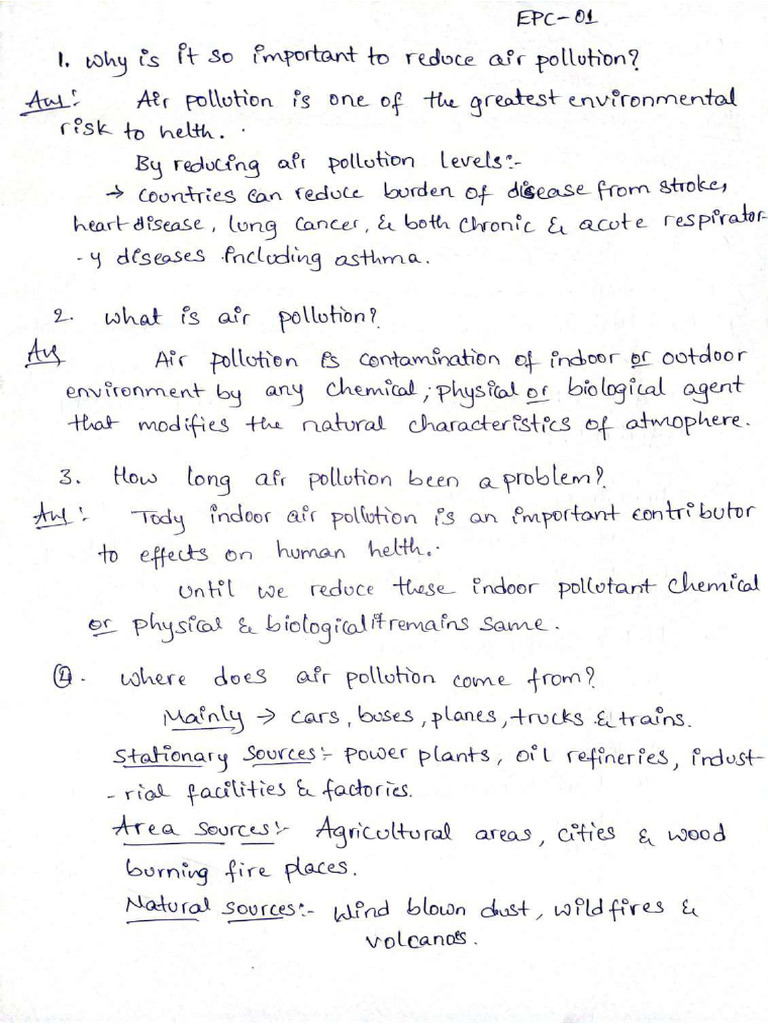 EPC-01
1. Why is it so important to reduce air pollution?
Ans: Air pollution is one of the greatest environmental
risk to helth.
By reducing air pollution levels:-
→ countries can reduce burden of disease from stroke,
heart disease, lung cancer, & both chronic & acute respirator-
-y diseases including asthma.
2. What is air pollution?
Ans Air pollution is contamination of indoor or outdoor
environment by any chemical, physical or biological agent
that modifies the natural characteristics of atmophere.
3. How long air pollution been a problem?
Ans: Tody indoor air pollution is an important contributor
to effects on human helth.
until we reduce these indoor pollutant chemical
or physical & biological it remains same.
4. Where does air pollution come from?
Mainly → cars, buses, planes, trucks & trains.
Stationary Sources:- power plants, oil refineries, indust-
-rial facilities & factories.
Area sources:- Agricultural areas, cities & wood
burning fire places.
Natural sources:- Wind blown dust, wildfires &
volcanoes.